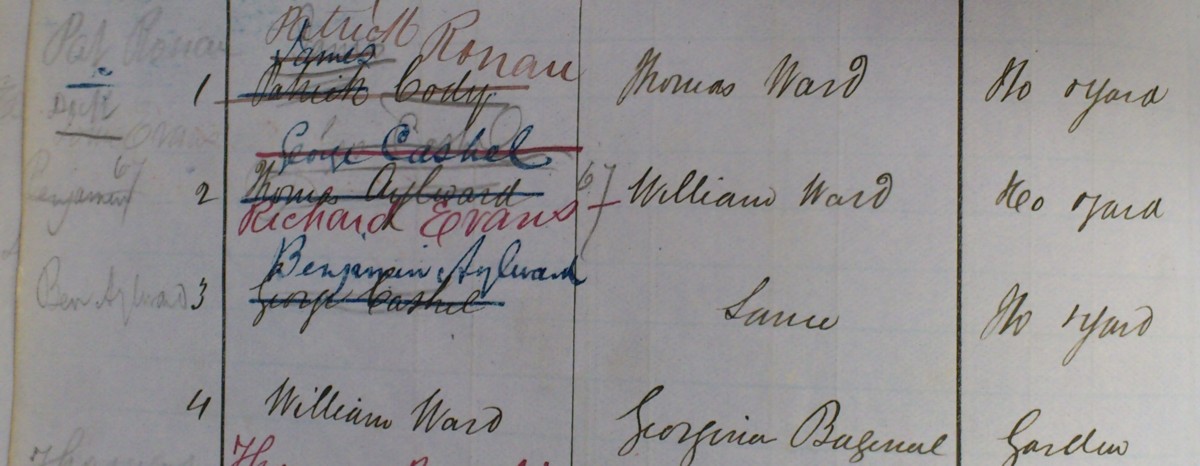 Pat Ronan
Patrick Ronan
James
1 Patrick Cody Thomas Ward Ho & yard
George Cashel
67
Benjamin 2 Thomas Aylward 67 William Ward Ho & yard
Richard Evans
Benjamin Aylward
Ben Aylward 3 George Cashel Same Ho & yard
4 William Ward Georgina Bagenal Garden
Thomas